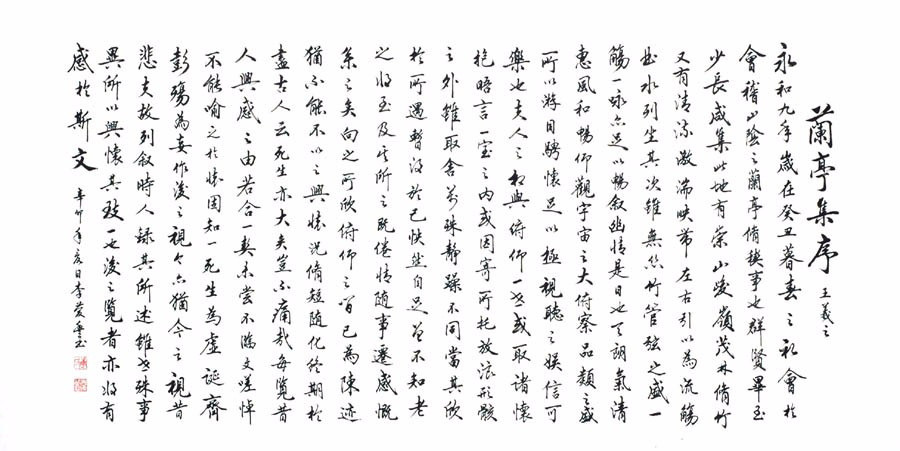 蘭亭集序
王羲之
永和九年歲在癸丑暮春之初會於
會稽山陰之蘭亭脩禊事也群賢畢至
少長咸集此地有崇山峻嶺茂林脩竹
又有清流激湍映帶左右引以為流觴
曲水列坐其次雖無絲竹管弦之盛一
觴一詠亦足以暢敘幽情是日也天朗氣清
惠風和暢仰觀宇宙之大俯察品類之盛
所以游目騁懷足以極視聽之娛信可
樂也夫人之相與俯仰一世或取諸懷
抱晤言一室之內或因寄所托放浪形骸
之外雖取舍萬殊靜躁不同當其欣
於所遇暫得於己快然自足曾不知老
之將至及其所之既倦情隨事遷感慨
系之矣向之所欣俯仰之間已為陳迹
猶不能不以之興懷況脩短隨化終期於
盡古人云死生亦大矣豈不痛哉每覽昔
人興感之由若合一契未嘗不臨文嗟悼
不能喻之於懷固知一死生為虛誕齊
彭殤為妄作後之視今亦猶今之視昔
悲夫故列敘時人錄其所述雖世殊事
異所以興懷其致一也後之覽者亦將有
感於斯文
辛卯年